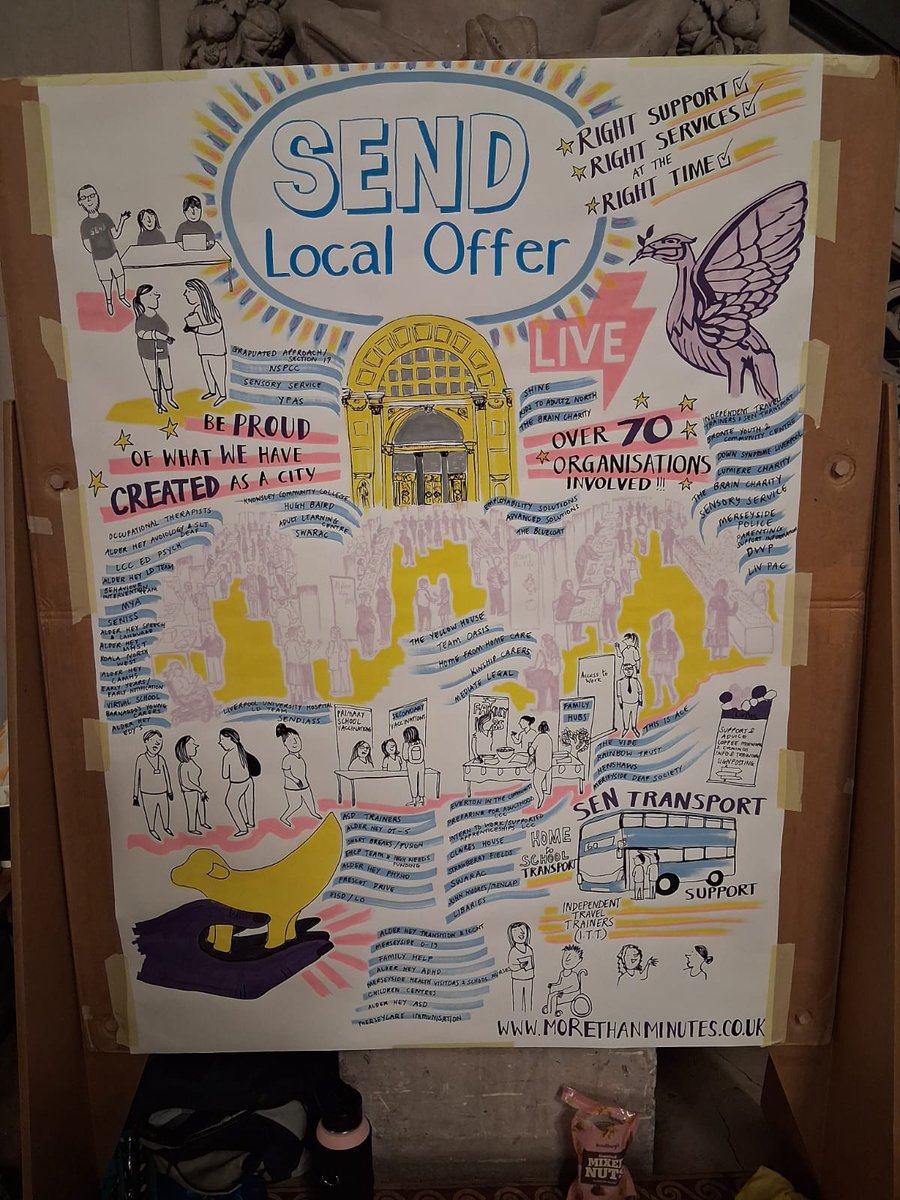 SEND
Local Offer
RIGHT SUPPORT
RIGHT SERVICES
AT THE
RIGHT TIME
LIVE
SEND
GRADUATED APPROACH/
SECTION 19
NSPCC
SENSORY SERVICE
YPAS
BE PROUD
OF WHAT WE HAVE
CREATED AS A CITY
SHINE
KIDS TO ADULTZ NORTH
THE BRAIN CHARITY
OVER 70
ORGANISATIONS
INVOLVED!!!
INDEPENDENT TRAVEL
TRAINERS & SEN TRANSPORT
BRONTE YOUTH &
COMMUNITY CENTRE
DOWN SYNDROME LIVERPOOL
LUMIERE CHARITY
THE BRAIN CHARITY
SENSORY SERVICE
MERSEYSIDE
POLICE
PARENTING
SUPPORT INFORMATION
DWP
LIV PAC
KNOWSLEY COMMUNITY COLLEGE
HUGH BAIRD
ADULT LEARNING
CENTRE
SWARAC
EMPLOYABILITY SOLUTIONS
ADVANCED SOLUTIONS
THE BLUECOAT
OCCUPATIONAL THERAPISTS
ALDER HEY AUDIOLOGY & SLT
DEAF
LCC ED PSYCH
ALDER HEY LD TEAM
BEHAVIOUR
INTERVENTION TEAM
MYA
SENISS
ALDER HEY SPEECH
& LANGUAGE
ALDER HEY
MHST
KOALA NORTH
WEST
ALDER HEY
CAMHS
EARLY YEARS/
EARLY NOTIFICATION
VIRTUAL SCHOOL
BARNARDOS YOUNG
CARERS
ALDER HEY
EDYS
THE YELLOW HOUSE
TEAM OASIS
HOME FROM HOME CARE
KINSHIP CARERS
MEDIATE LEGAL
LIVERPOOL UNIVERSITY HOSPITAL
LD TEAM
SENDIASS
PRIMARY
SCHOOL
VACCINATIONS
SECONDARY
VACCINATIONS
FAMILY
HUBS
Access to
Work
THIS IS ACE
THE VIBE
RAINBOW TRUST
HENSHAWS
MERSEYSIDE DEAF SOCIETY
SUPPORT &
ADVICE
COFFEE MORNINGS
INFO & TRAINING
SIGNPOSTING
ASD TRAINERS
ALDER HEY OT-S
SHORT BREAKS/FUSION
EHCP TEAM & HIGH NEEDS
FUNDING
ALDER HEY PHYSIO
PRESCOT DRIVE
EVERTON IN THE COMMUNITY
PREPARING FOR ADULTHOOD
LCC
INTERN TO WORK/SUPPORTED
APPRENTICESHIPS LCC
CLARES HOUSE
STRAWBERRY FIELDS
SWARAC
JOHN MOORES/MENCAP
LIBARIES
SEN TRANSPORT
HOME
to
SCHOOL
TRANSPORT
SUPPORT
INDEPENDENT
TRAVEL
TRAINERS
(I.T.T)
ALDER HEY TRANSITION & 18IGHT
MERSEYSIDE 0-19
FAMILY HELP
ALDER HEY ADHD
MERSEYSIDE HEALTH VISITORS & SCHOOL NURSE
CHILDREN CENTRES
ALDER HEY ASD
MERSEYCARE IMMUNISATION
WWW.MORETHANMINUTES.CO.UK
MIXED
NUTS